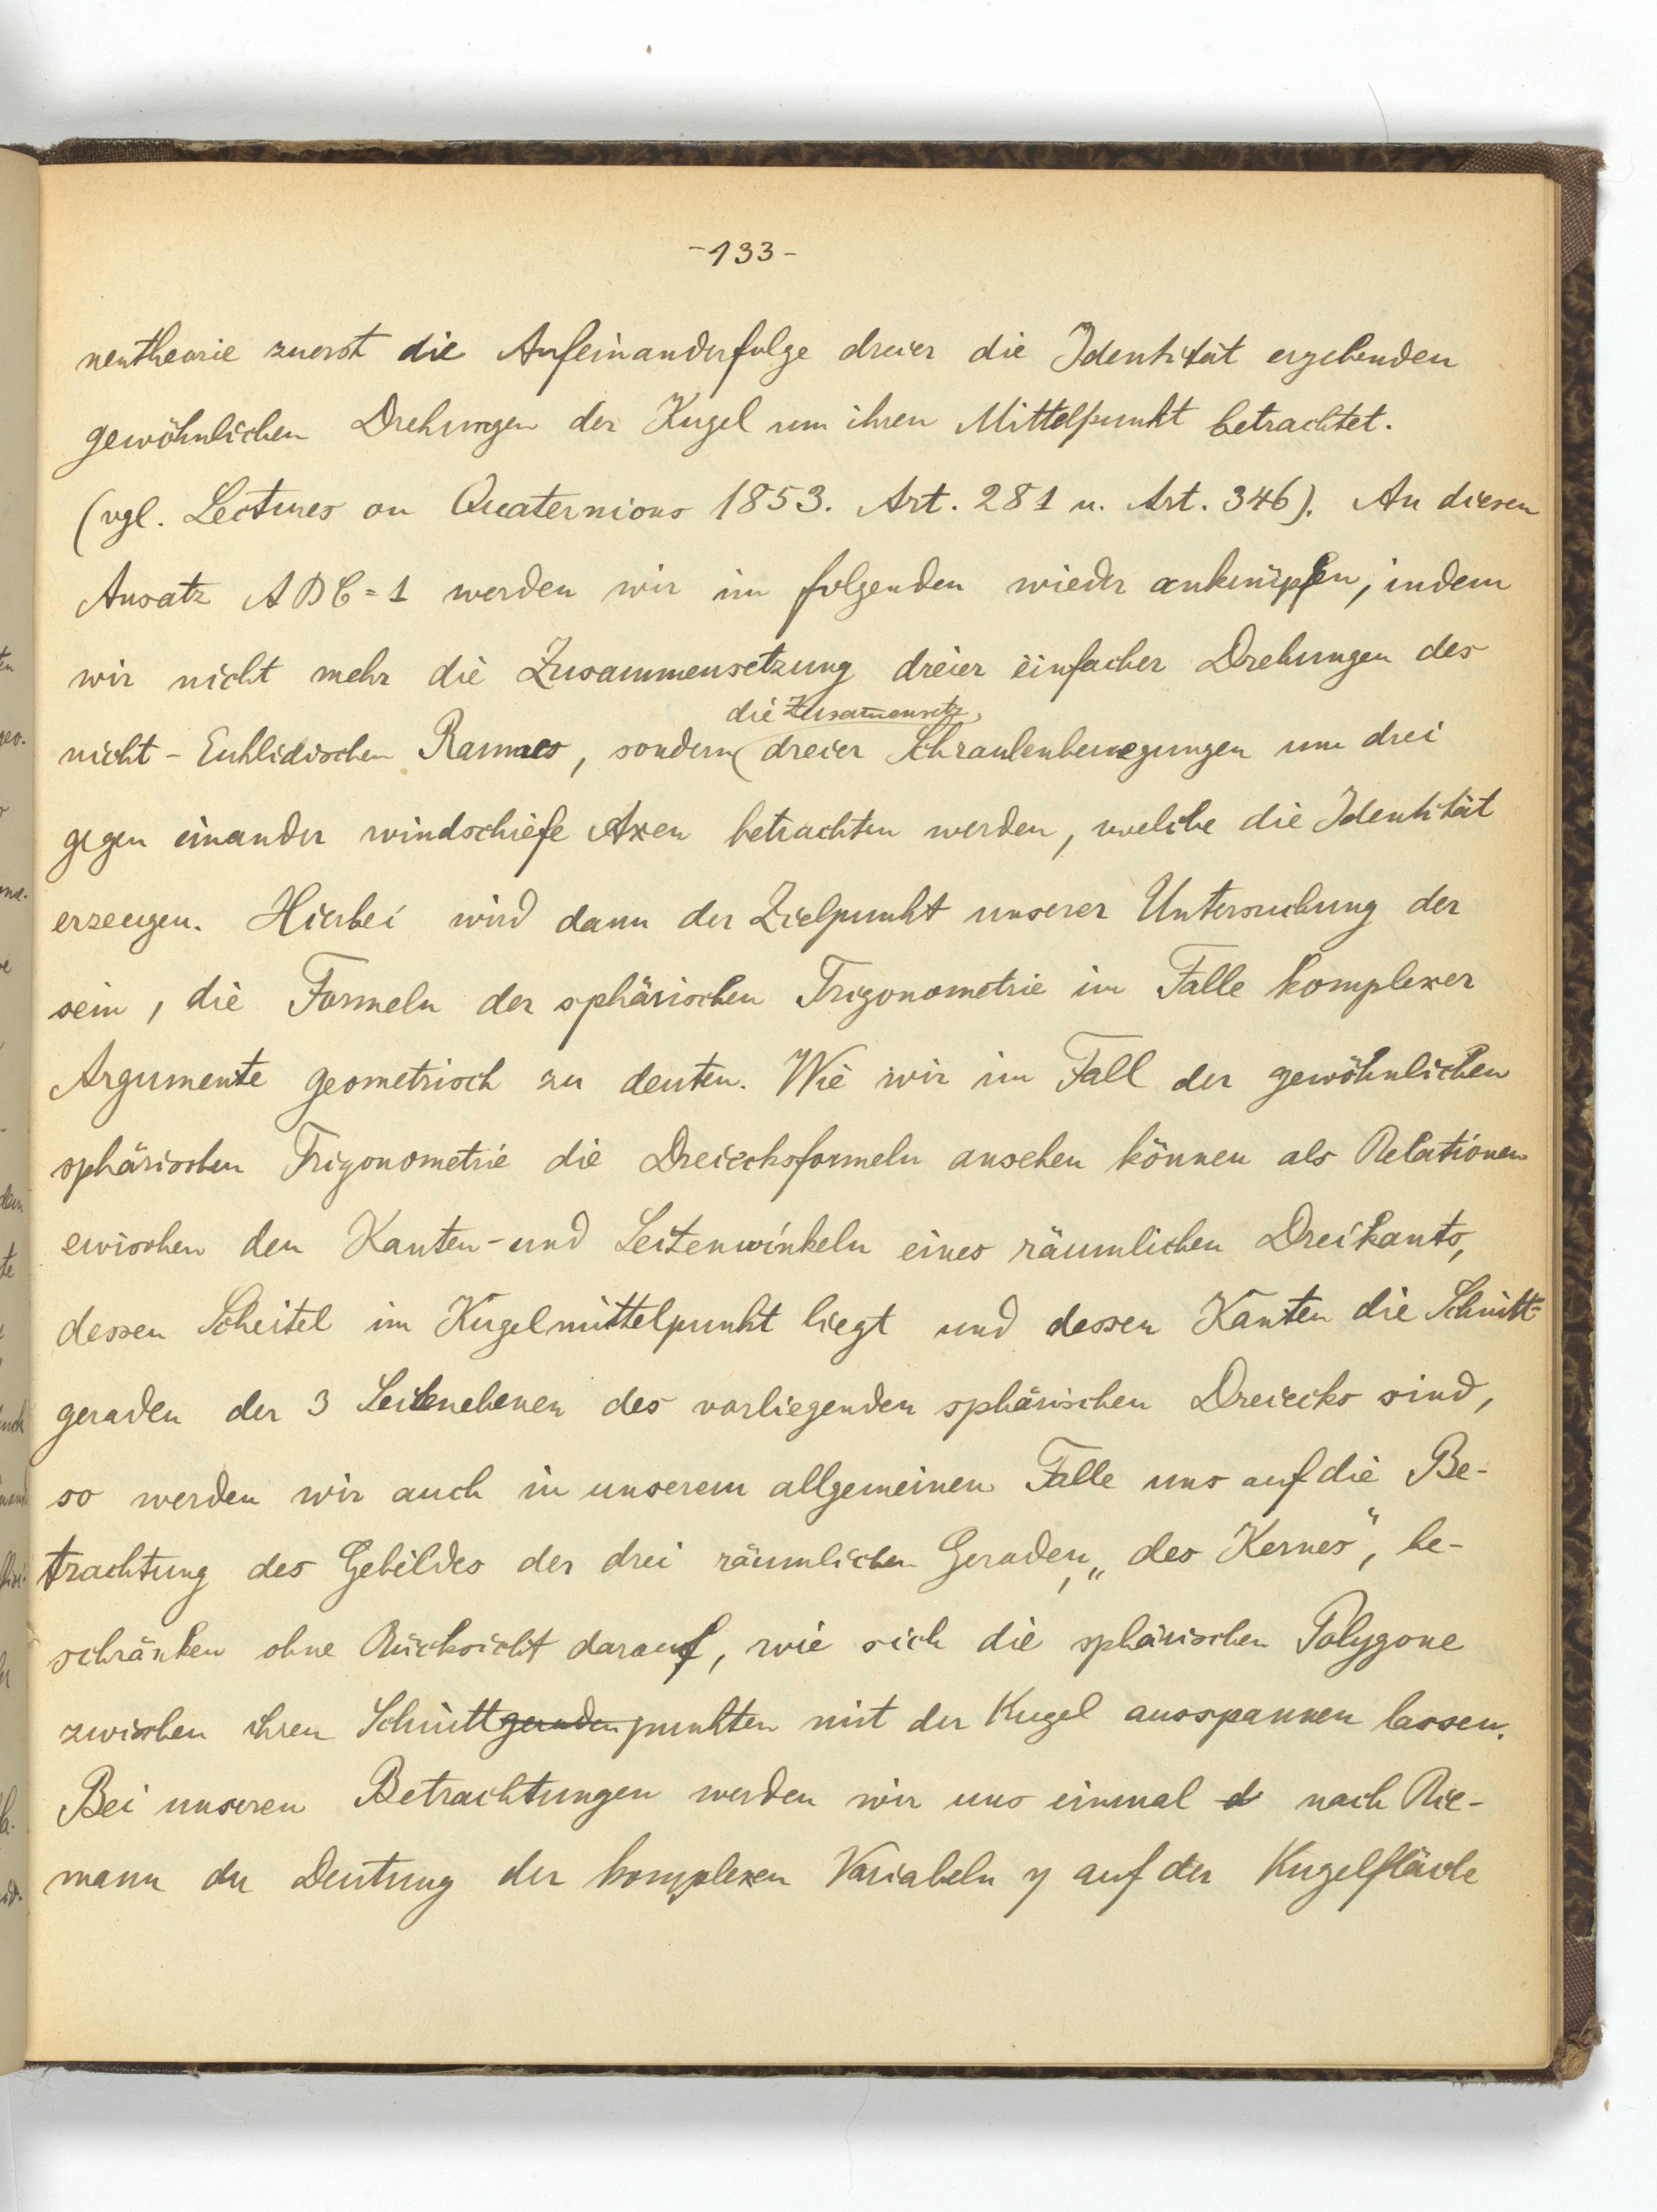 -133-
nentheorie zuerst die Aufeinanderfolge dreier die Identität ergebenden
gewöhnlichen Drehungen der Kugel um ihren Mittelpunkt betrachtet.
(vgl. Lectures on Quaternions 1853. Art. 281 u. Art. 346). An diesen
Ansatz ABC = 1 werden wir im folgenden wieder anknüpfen, indem
wir nicht mehr die Zusammensetzung dreier einfacher Drehungen des
die Zusam̅ensetz.
nicht-Euklidischen Raumes, sondern dreier Schraubenbewegungen um drei
gegen einander windschiefe Axen betrachten werden, welche die Identität
erzeugen. Hierbei wird dann der Zielpunkt unserer Untersuchung der
sein, die Formeln der sphärischen Trigonometrie im Falle komplexer
Argumente geometrisch zu deuten. Wie wir im Fall der gewöhnlichen
sphärischen Trigonometrie die Dreiecksformeln ansehen können als Relationen
zwischen den Kanten- und Seitenwinkeln eines räumlichen Dreikants,
dessen Scheitel im Kugelmittelpunkt liegt und dessen Kanten die Schnitt-
geraden der 3 Seitenebenen des vorliegenden sphärischen Dreiecks sind,
so werden wir auch in unserem allgemeinen Falle uns auf die Be-
trachtung des Gebildes der drei räumlichen Geraden, „des Kernes“, be-
schränken ohne Rücksicht darauf, wie sich die sphärischen Polygone
zwischen ihren Schnittgeradenpunkten mit der Kugel ausspannen lassen.
Bei unseren Betrachtungen werden wir uns einmal d nach Rie-
mann der Deutung der komplexen Variabeln η auf der Kugelfläche